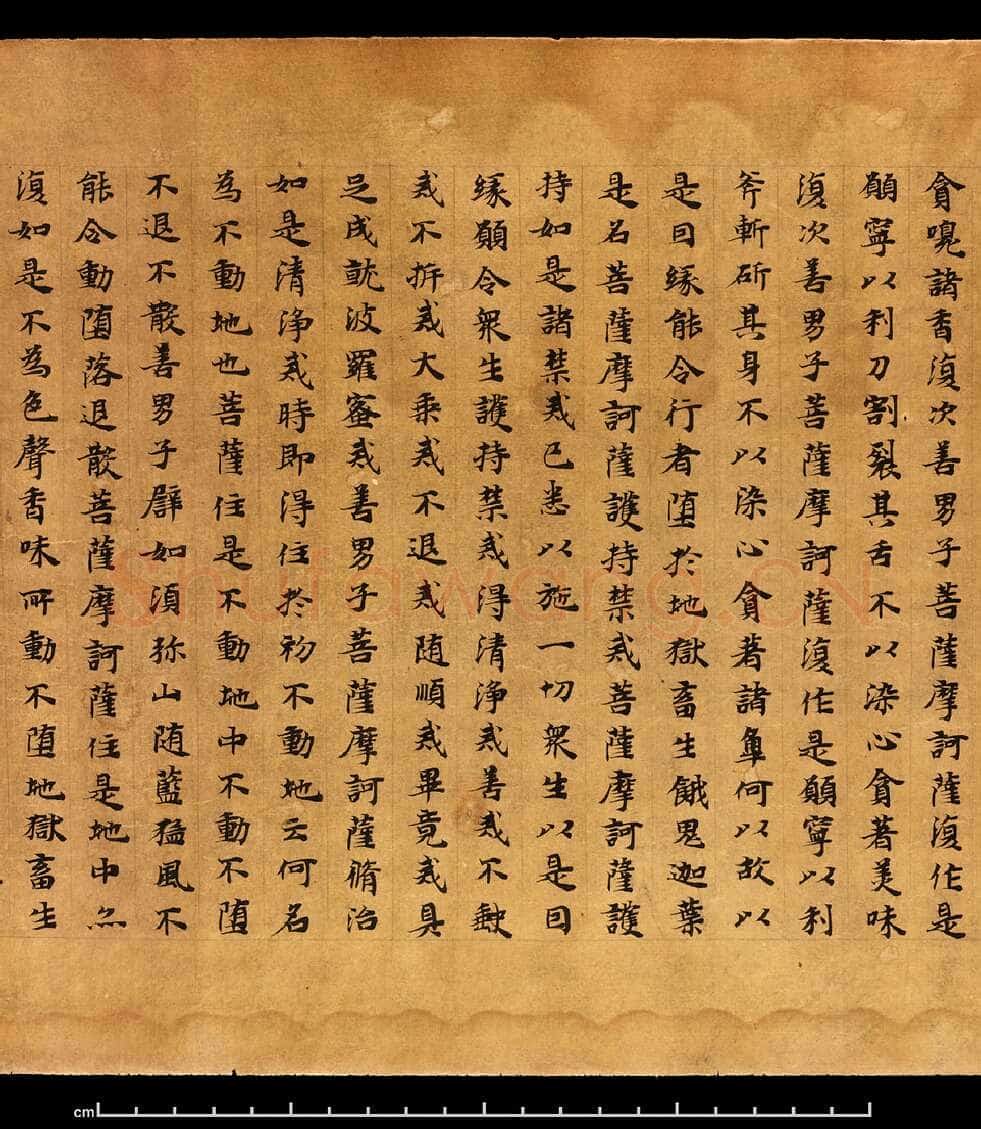 貪嗅諸香復次善男子菩薩摩訶薩復作是
願寧以利刀割裂其舌不以染心貪著美味
復次善男子菩薩摩訶薩復作是願寧以利
斧斬斫其身不以染心貪著諸觸何以故以
是因緣能令行者堕於地獄畜生餓鬼迦葉
是名菩薩摩訶薩護持禁戒菩薩摩訶薩護
持如是諸禁戒已悉以施一切眾生以是因
緣願令眾生護持禁戒得清淨戒善戒不缺
戒不析戒大乘戒不退戒随順戒畢竟戒具
足成就波羅蜜戒善男子菩薩摩訶薩脩治
如是清淨戒時即得住於初不動地云何名
為不動地也菩薩住是不動地中不動不堕
不退不散善男子辟如須弥山随藍猛風不
能令動堕落退散菩薩摩訶薩住是地中亦
復如是不為色聲香味所動不堕地獄畜生
Shufawang.CN
cm